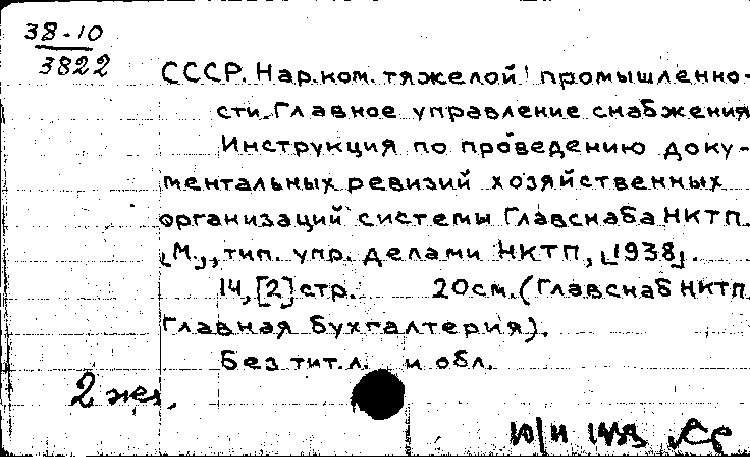 38-10
3822
СССР. Нар.ком. тяжелой промышленно-
сти. Главное управление снабжения
Инструкция по проведению доку-
ментальных ревизий хозяйственных
организаций системы Главснаба НКТП.
[М.], тип. упр. делами НКТП, [1938].
14, [2] стр. 20см. (Главснаб НКТП
Главная бухгалтерия).
Без тит. л. и обл.
2 экз.